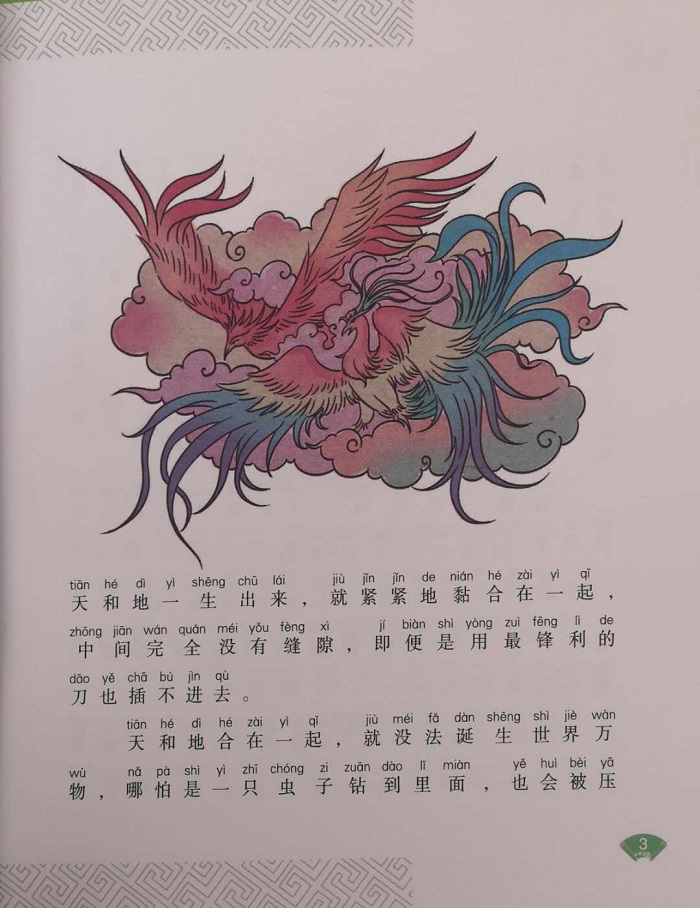 tiān hé dì yì shēng chū lái jiù jǐn jǐn de nián hé zài yì qǐ
天和地一生出来，就紧紧地黏合在一起，
zhōng jiān wán quán méi yǒu fèng xì jí biàn shì yòng zuì fēng lì de
中间完全没有缝隙，即便是用最锋利的
dāo yě chā bú jìn qù
刀也插不进去。
tiān hé dì hé zài yì qǐ jiù méi fǎ dàn shēng shì jiè wàn
天和地合在一起，就没法诞生世界万
wù nǎ pà shì yì zhī chóng zi zuān dào lǐ miàn yě huì bèi yā
物，哪怕是一只虫子钻到里面，也会被压
3